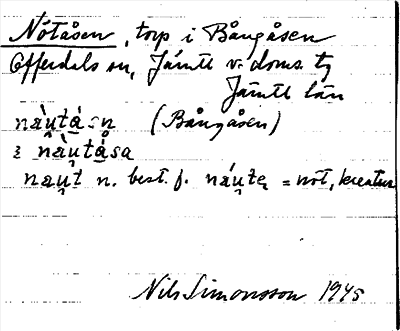 Nötåsen, torp i Bångåsen
Offerdals sn, Jämtl v. doms. tg
Jämtl län
nàu̯tå̀sn̥ (Bångåsen)
ː n̥àu̯tå̀sa
nau̯t n. best. f. náu̯te̜ = nöt, kreatur
Nils Simonsson 1945